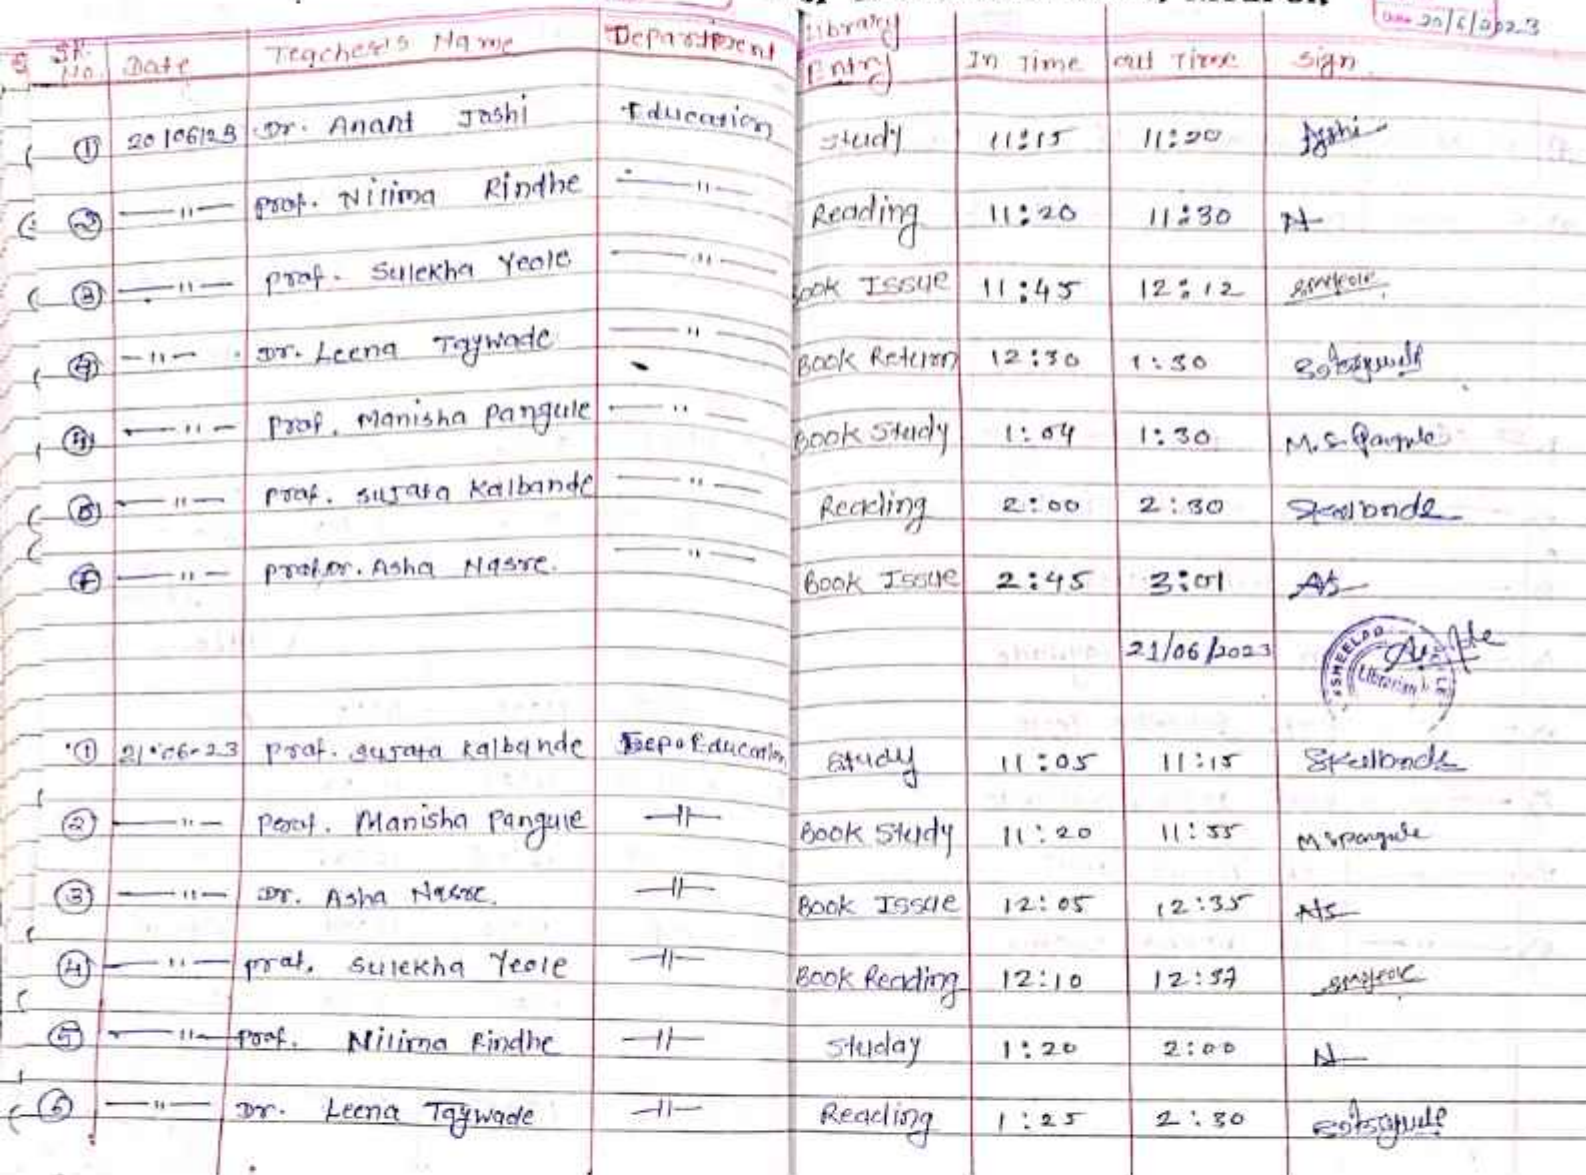 Date 20/6/2023
Sr. No. Date Teacher's Name Department Library Entry In Time out Time Sign
① 20/06/23 Dr. Anant Joshi Education Study 11:15 11:20 Joshi
② —"— prof. Nilima Rindhe —"— Reading 11:20 11:30 N
③ —"— prof. Sulekha Yeole —"— Book Issue 11:45 12:12
④ —"— Dr. Leena Taywade —"— Book Return 12:30 1:30
—"— prof. Manisha Pangule —"— Book Study 1:04 1:30 M.S. Pangule
—"— prof. Sujata Kalbande —"— Reading 2:00 2:30 Skalbande
⑦ —"— prof.Dr. Asha Nasre. —"— Book Issue 2:45 3:01
21/06/2023
Librarian
① 21-06-23 prof. Sujata Kalbande Dep. Education Study 11:05 11:15 Skalbande
② —"— prof. Manisha Pangule —||— Book Study 11:20 11:55 M S Pangule
③ —"— Dr. Asha Nasre. —||— Book Issue 12:05 12:35
④ —"— prof. Sulekha Yeole —||— Book Reading 12:10 12:57
⑤ —"— prof. Nilima Rindhe —||— Studay 1:20 2:00 N
⑥ —"— Dr. Leena Taywade —||— Reading 1:25 2:30